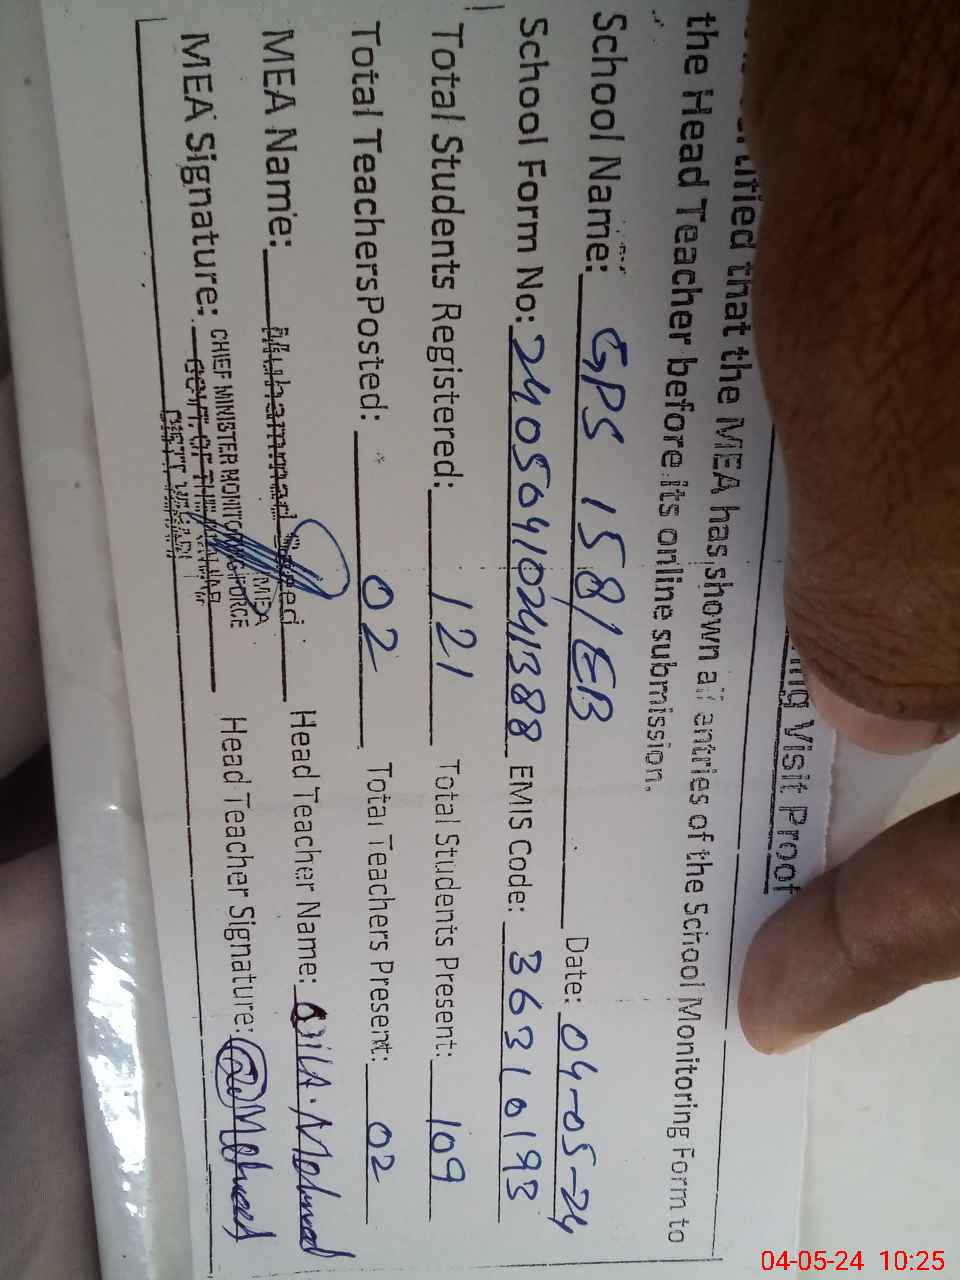 ing Visit Proof
tified that the MEA has shown all entries of the School Monitoring Form to
the Head Teacher before its online submission.
School Name: GPS 158/EB Date: 04-05-24
School Form No: 24050410241388 EMIS Code: 36310193
Total Students Registered: 121 Total Students Present: 109
Total TeachersPosted: 02 Total Teachers Present: 02
MEA Name: Muhammad Saeed Head Teacher Name:
MEA
MEA Signature: CHIEF MINISTER MONITORING FORCE Head Teacher Signature:
GOVT. OF THE PUNJAB
DISTT. VEHARI
04-05-24 10:25